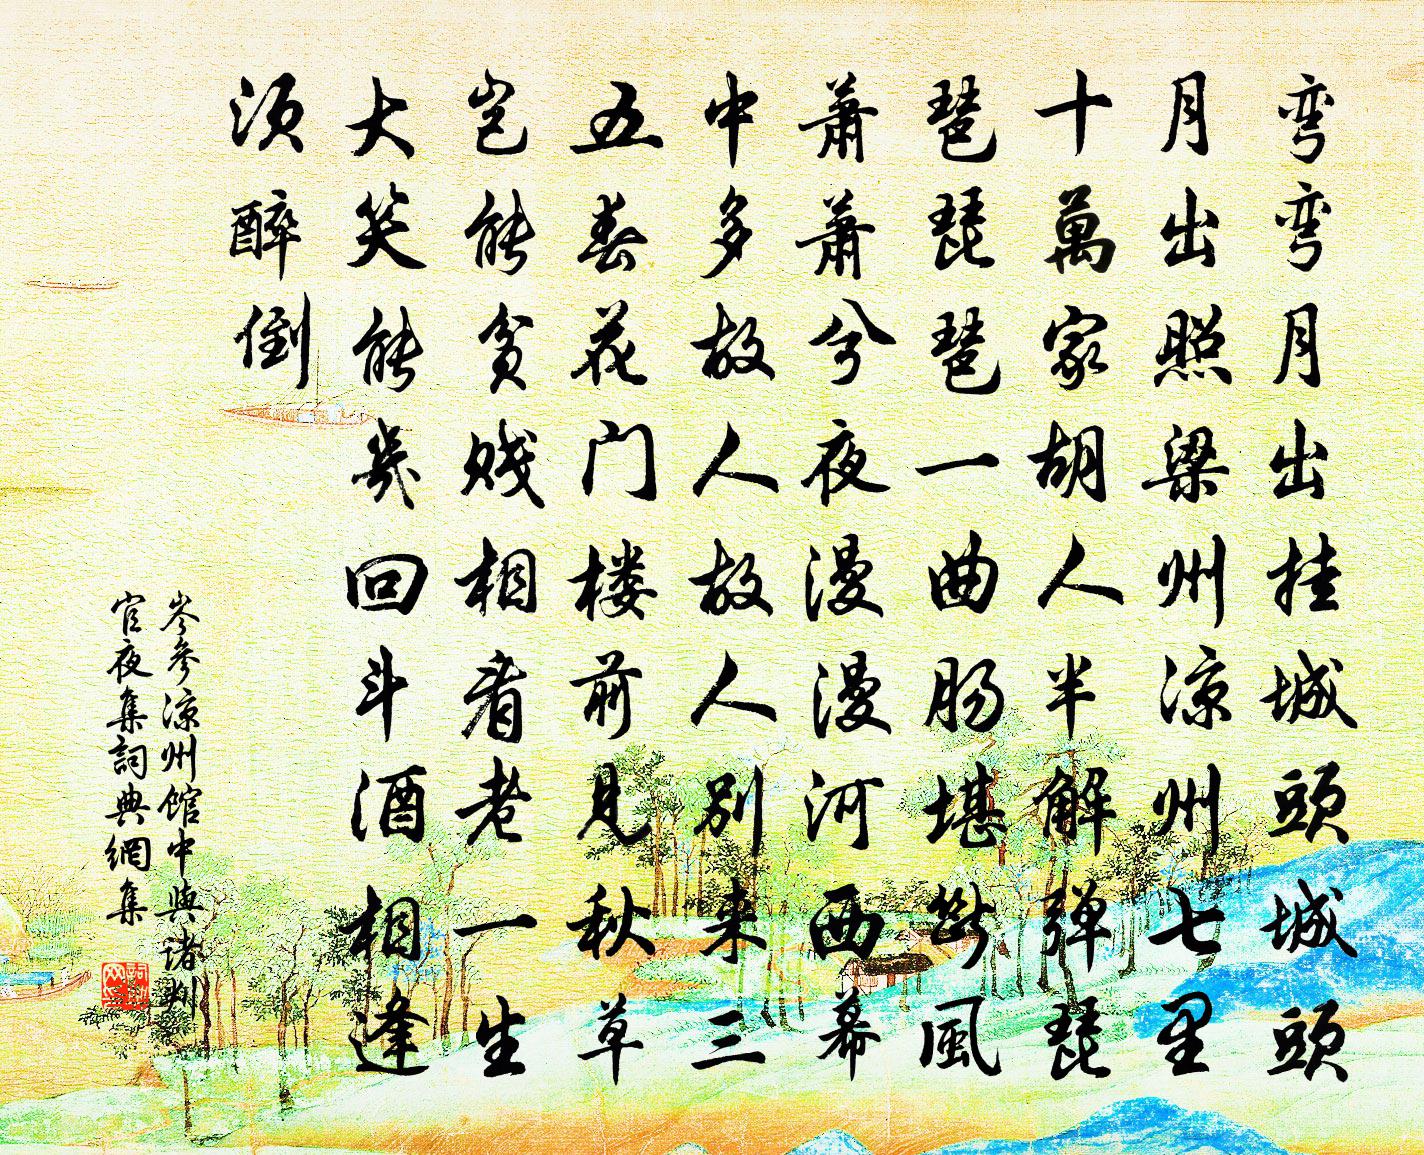 弯弯月出挂城頭城頭
月出照梁州涼州七里
十萬家胡人半解弹琵
琶琵琶一曲肠堪断風
蕭蕭兮夜漫漫河西幕
中多故人故人別来三
五春花门楼前見秋草
岂能贫贱相看老一生
大笑能幾回斗酒相逢
须醉倒
岑參涼州館中與诸判
官夜集詞典網集